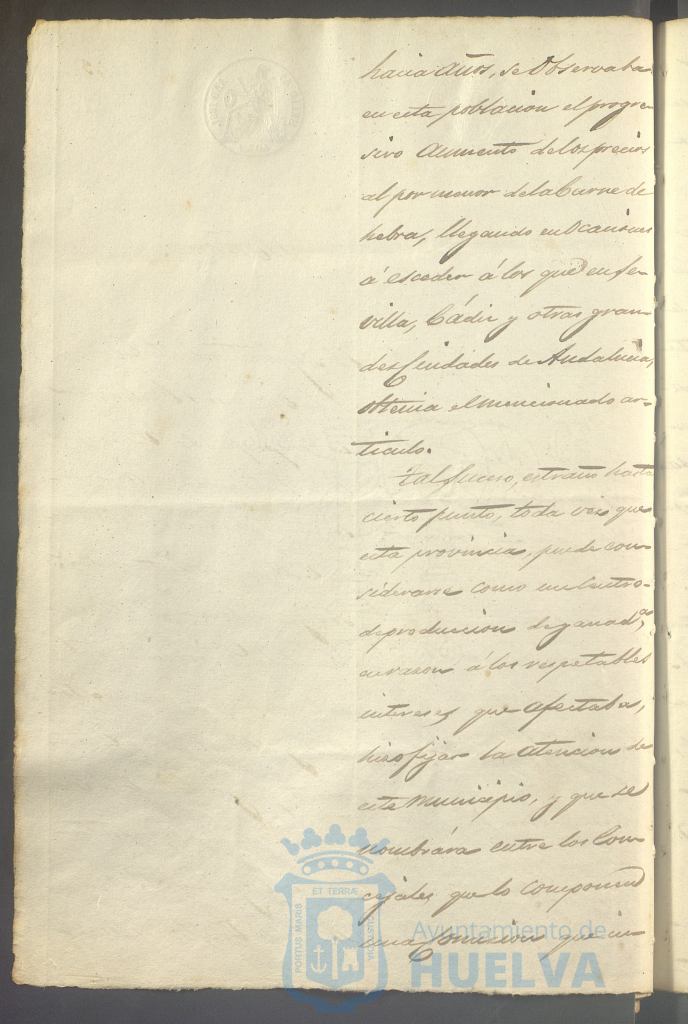 hacia años, se Observaba
en esta poblacion el progre-
sivo Aumento de los precios
al por menor de la Carne de
hebra, llegando en Ocasiones
á esceder á los que en Se-
villa, Cádiz y otras gran-
des Ciudades de Andalucia,
obtenia el mencionado ar-
ticulo.
Tal suceso, estraño hasta
cierto punto, toda vez que
esta provincia, puede con-
siderarse como un Centro
de produccion de ganad.ª,
en razon á los respetables
intereses que afectaba,
hizo fijar la Atencion de
este Municipio, y que se
nombrára entre los Con-
cejales que lo componen
una Comision que in-
PORTUS MARIS ET TERRÆ CUSTODIA
Ayuntamiento de
HUELVA